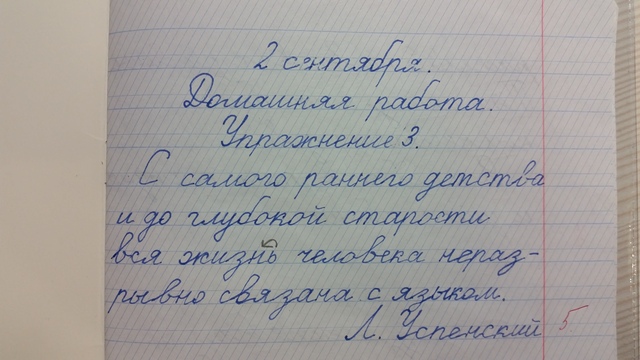 2 сентября.
Домашняя работа.
Упражнение 3.
С самого раннего детства
и до глубокой старости
вся жизнь человека нераз-
рывно связана с языком.
Л. Успенский 5